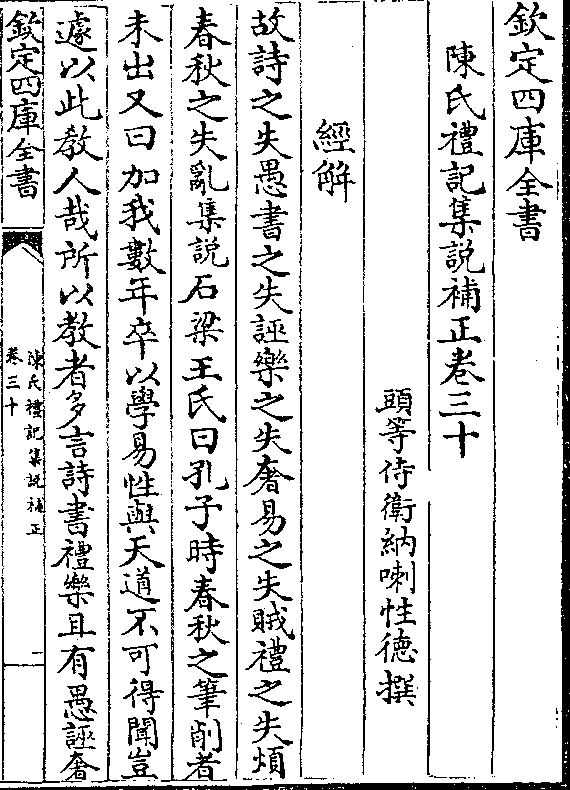 欽定四庫全書
陳氏禮記集說補正卷三十
頭等侍衛納喇性德撰
經解
故詩之失愚書之失誣樂之失奢易之失賊禮之失煩
春秋之失亂集說石梁王氏曰孔子時春秋之筆削者
未出又曰加我數年卒以學易性與天道不可得聞豈
遽以此教人哉所以教者多言詩書禮樂且有愚誣奢
欽定四庫全書
陳氏禮記集說補正
卷三十
一